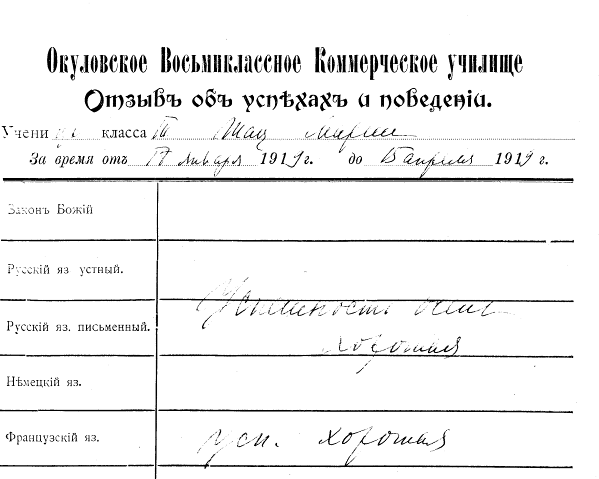 Окуловское Восьмиклассное Коммерческое училище
Отзывъ объ успѣхахъ и поведеніи.
Учени цы класса III Шац Марии
За время отъ 17 января 1919 г. до 15 апреля 1919 г.
Законъ Божій
Русскій яз устный.
Успешность
Русскій яз. письменный.
хорошая
Нѣмецкій яз.
Французскій яз. усп. хорошая